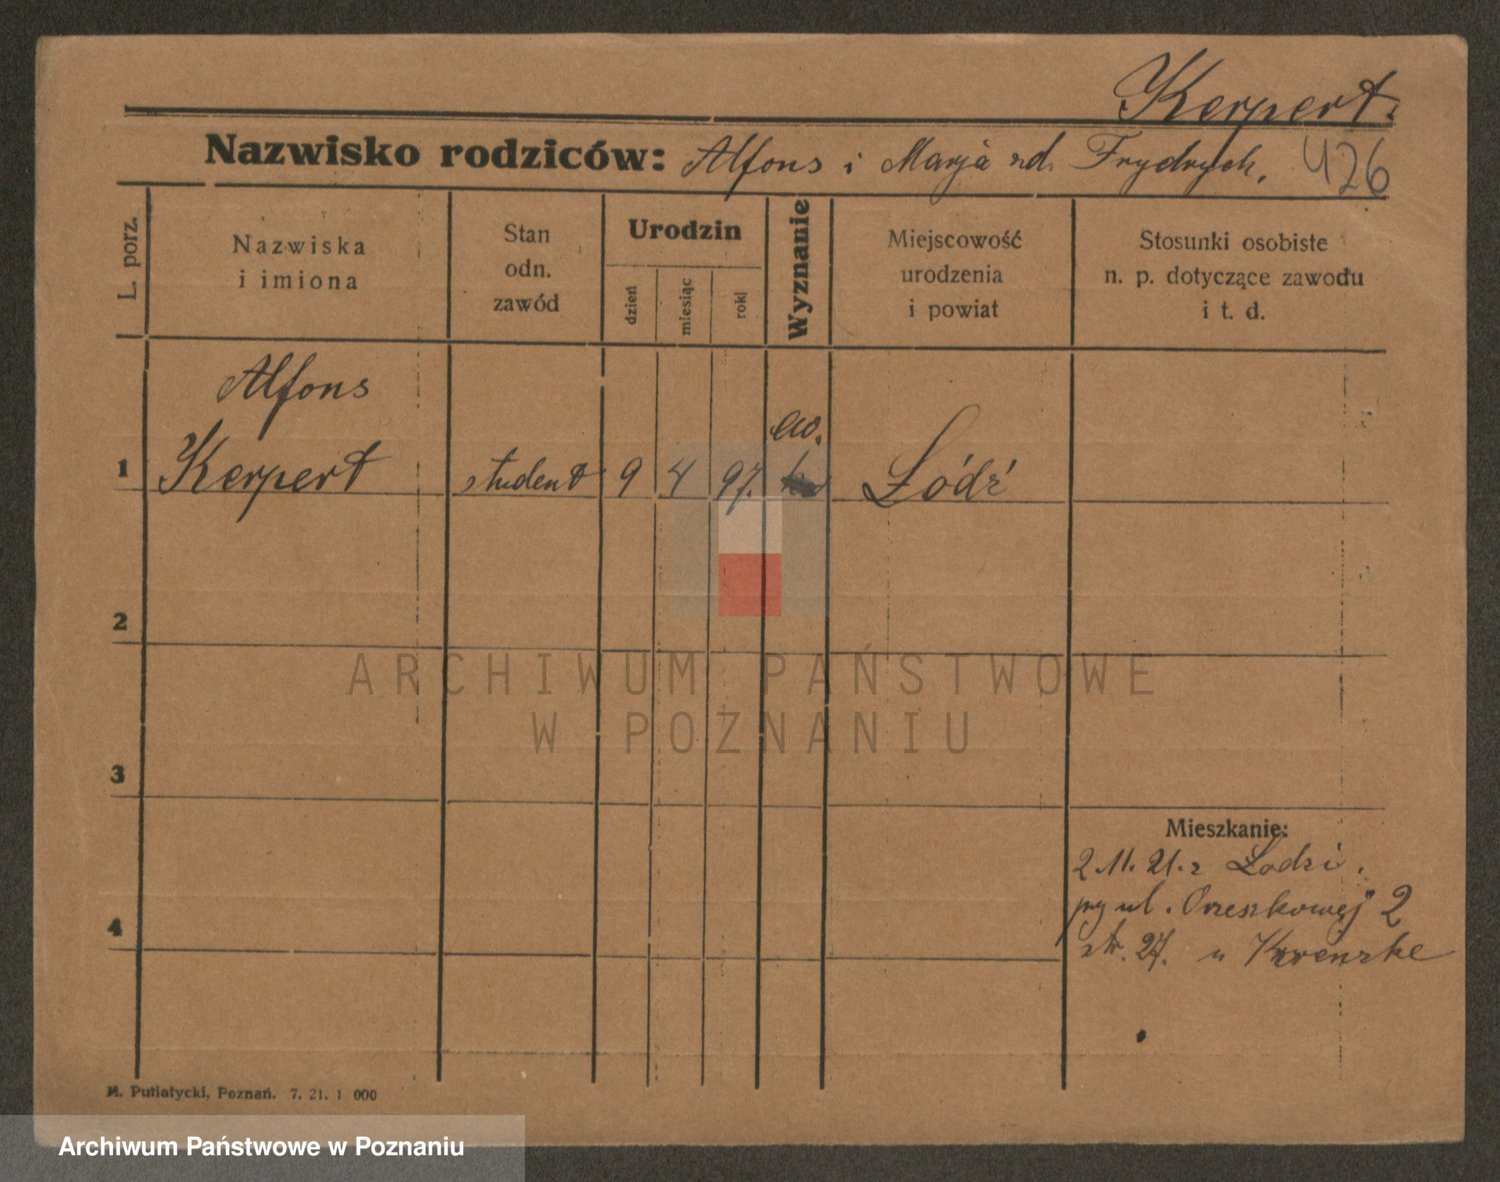 Kerpert.
Nazwisko rodziców: Alfons i Marja zd. Frydrych. 426
L. porz.
Nazwiska
i imiona
Stan
odn.
zawód
Urodzin
dzień
miesiąc
rok
Wyznanie
Miejscowość
urodzenia
i powiat
Stosunki osobiste
n. p. dotyczące zawodu
i t. d.
Alfons
ew.
1 Kerpert student 9 4 97. Łódź
2
ARCHIWUM PAŃSTWOWE
W POZNANIU
3
Mieszkanie:
2.11.21. z Łodzi.
przy ul. Orzeszkowej 2
4
27. u
M. Putiatycki, Poznań. 7. 21. 1 000
Archiwum Państwowe w Poznaniu